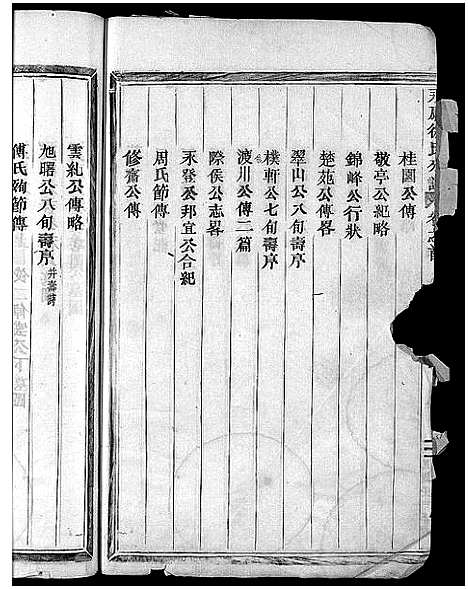 桂園公傳
敬亭公紀略
錦峰公行狀
楚苑公傳畧
翠山公八旬壽序
樸軒公七旬壽序
渡川公傳二篇
際侯公志畧
永登公邦宜公合紀
周氏節傳
修齋公傳
雲紀公傳略
旭曙公八旬壽序 并壽詩
傅氏殉節傳